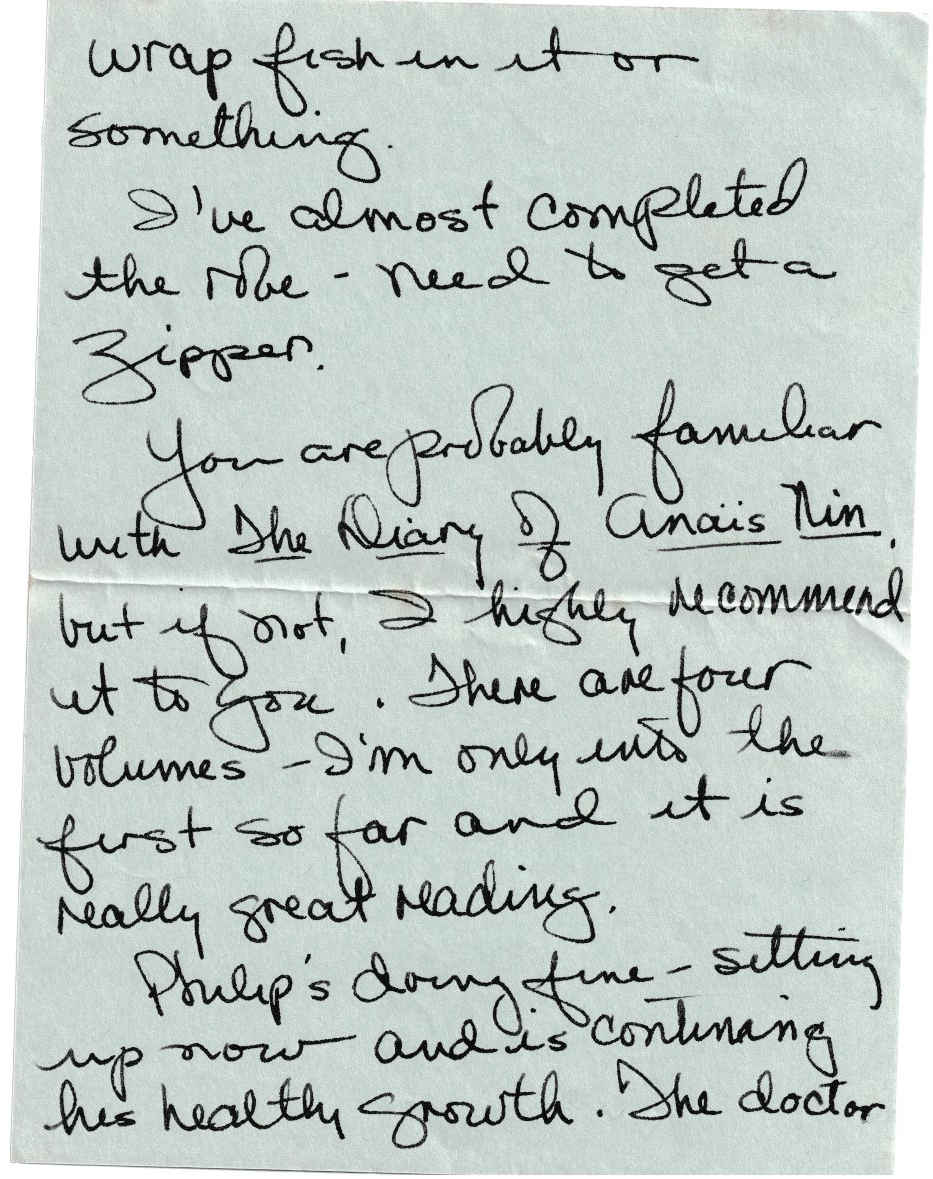 wrap fish in it or
something.
I've almost completed
the robe - need to get a
zipper.
You are probably familiar
with The Diary of Anais Nin,
but if not, I highly recommend
it to you. There are four
volumes - I'm only into the
first so far and it is
really great reading.
Philip's doing fine - sitting
up now and is continuing
his healthy growth. The doctor